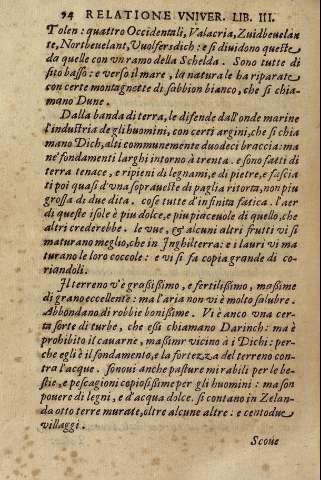 94 RELATIONE VNIVER. LIB. III.
Tolen: quattro Occidentali, Valacria, Zuidbeuelan
te, Nortbeuelant, Vuolfersdich: e si diuidono queste
da quelle con vn ramo della Schelda. Sono tutte di
sito basso: e verso il mare, la natura le ha riparate
con certe montagnette di sabbion bianco, che si chia-
mano Dune.
Dalla banda di terra, le difende dall'onde marine
l'industria de gli huomini, con certi argini, che si chia
mano Dich, alti communemente duodeci braccia: ma
ne' fondamenti larghi intorno à trenta. e sono fatti di
terra tenace, e ripieni di legnami, e di pietre, e fascia
ti poi quasi d'vna sopraueste di paglia ritorta, non piu
grossa di due dita. cose tutte d'infinita fatica. l'aer
di queste isole è piu dolce, e piu piaceuole di quello, che
altri crederebbe. le vue, & alcuni altri frutti vi si
maturano meglio, che in Inghilterra: e i lauri vi ma
turano le loro coccole: e vi si fa copia grande di co-
riandoli.
Il terreno v'è grassissimo, e fertilissimo, massime
di grano eccellente: ma l'aria non vi è molto salubre.
Abbondano di robbie bonissime. Vi è anco vna cer-
ta sorte di turbe, che essi chiamano Darinch: ma è
prohibito il cauarne, massime vicino à i Dichi: per-
che egli è il fondamento, e la fortezza del terreno con-
tra l'acque. Sonoui anche pasture mirabili per le be-
stie, e pescagioni copiosissime per gli huomini: ma son
pouere di legni, e d'acqua dolce. si contano in Zelan-
da otto terre murate, oltre alcune altre: e centodue
villaggi.
Scoue